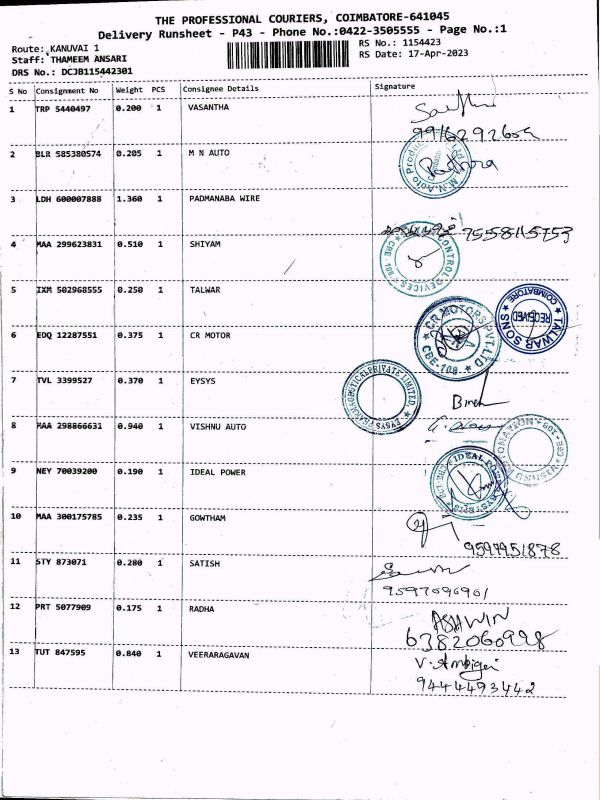 THE PROFESSIONAL COURIERS, COIMBATORE-641045
Delivery Runsheet - P43 - Phone No.:0422-3505555 - Page No.:1
Route: KANUVAI 1
RS No.: 1154423
Staff: THAMEEM ANSARI
RS Date: 17-Apr-2023
DRS No.: DCJB115442301
S No Consignment No Weight PCS Consignee Details Signature
1 TRP 5440497 0.200 1 VASANTHA
2 BLR 585380574 0.205 1 M N AUTO
3 LDH 600007888 1.360 1 PADMANABA WIRE
4 MAA 299623831 0.510 1 SHIYAM
CONTROL DEVICES
5 IXM 502968555 0.250 1 TALWAR
TALWAR SONS
RECEIVED
COIMBATORE
6 EDQ 12287551 0.375 1 CR MOTOR
CR MOTORS PVT. LTD
CBE-108
7 TVL 3399527 0.370 1 EYSYS
EYSYS PHARMACEUTICAL PRIVATE LIMITED
8 MAA 298866631 0.940 1 VISHNU AUTO
9 NEY 70039200 0.190 1 IDEAL POWER
10 MAA 300175785 0.235 1 GOWTHAM
9597951878
11 STY 873071 0.280 1 SATISH
9597696961
12 PRT 5077909 0.175 1 RADHA
ASHWIN
6382060998
13 TUT 847595 0.840 1 VEERARAGAVAN
9444493442